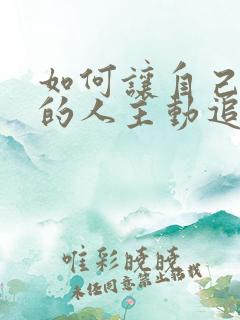 如何讓自己
的人主動追
唯彩曉曉
未经同意禁止搭我